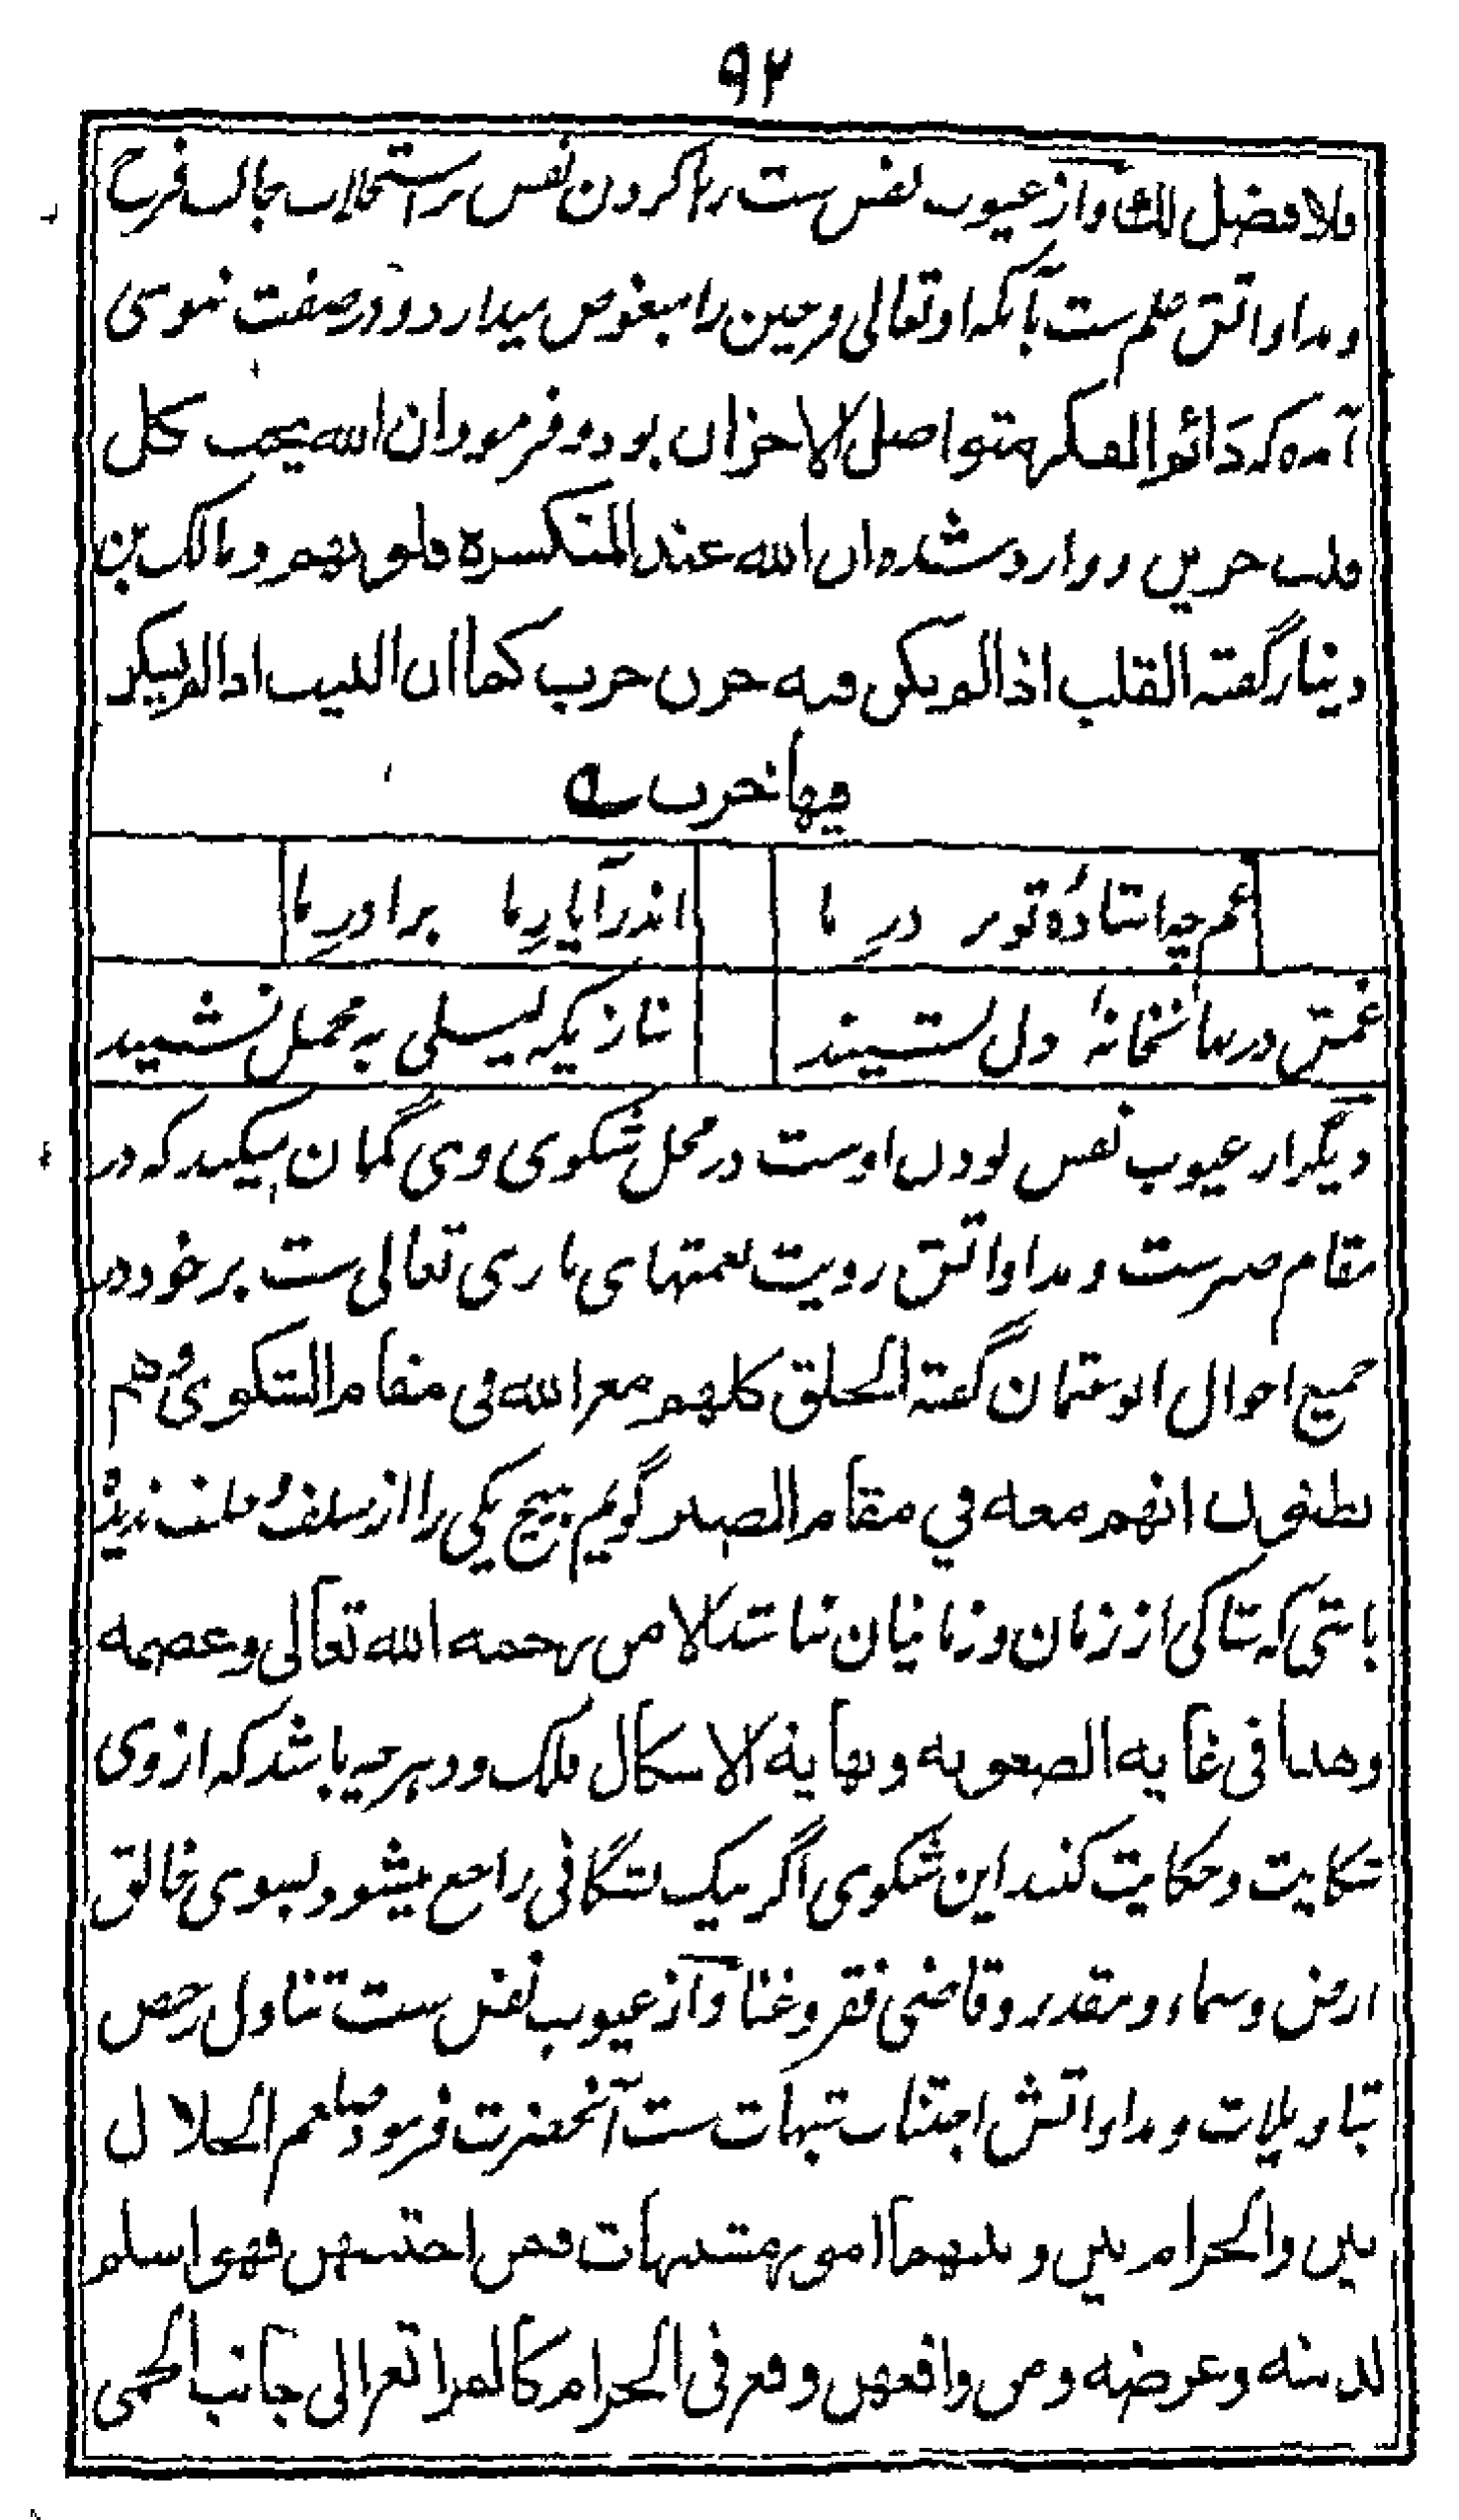 ۹۲
فلا فضل لك واز عیوب نفس ست رها کردن نفس بر استحلاب حال فرح
و مداواتش علم ست بآنکه او تعالی فرحین را مبغوض میدارد و در صفت نبوی
آمده که دائم الفکر متواصل الاحزان بود و فرمود ان الله یحب کل
قلب حزین و وارد شده ان الله عند المنکسرة قلوبهم و مالک بن
دینار گفته القلب اذا لم یکن فیه حزن خرب کما ان البیت اذا لم یسکن
فیها تخرب ے
غم چه استادهٔ تو بر در ما
اندر آ یار ما برادر ما
غمش در نهانخانهٔ دل نشیند
بنازیکه لیلی به محمل نشیند
دیگر از عیوب نفس بودن اوست در محل شکوی و وی گمان میکند که در
مقام صبرست و مداواتش رویت نعمتهای باری تعالی ست بر خود در
جمیع احوال ابو عثمان گفته الخلق کلهم مع الله فی مقام الشکوی و هم
یظنون انهم معه فی مقام الصبر گویم هیچ یکی را از سلف و خلف ندیده
باشی که شاکی از زمان و زمانیان نباشد الا من رحمه الله تعالی و عصمه
وهذا فی غایة الصعوبة و نهایة الاشکال فلک و دهر چه باشد که از وی
شکایت و حکایت کنند این شکوی اگر نیک بشگافی راجع میشود بسوی خالق
ارض و سماء و مقدر و قاضی فقر و غنا واز عیوب نفس ست تناول رخص
بتاویلات و مداواتش اجتناب شبهات ست آنحضرت فرمود صلعم الحلال
بین والحرام بین و بینهما امور مشتبهات فمن اجتنبهن فهو اسلم
لدینه و عرضه و من واقعهن وقع فی الحرام کالمراتع الی جانب الحمی